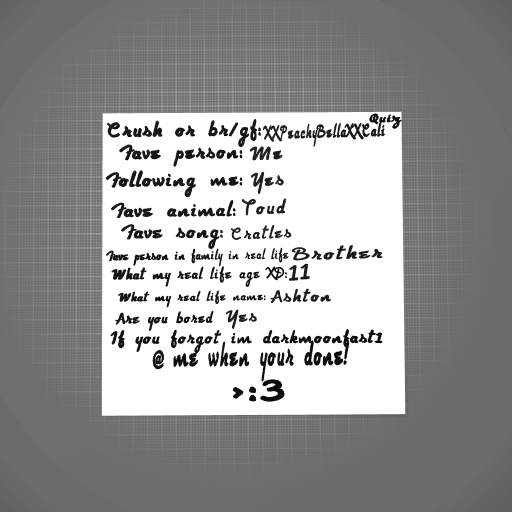 Quiz
Crush or br/gf:XXPeachyBellaXXCali
Fave person: Me
Following me: Yes
Fave animal: Toud
Fave song: Cratles
Fave person in family in real life Brother
What my real life age XD:11
What my real life name: Ashton
Are you bored Yes
If you forgot im darkmoonfast1
@ me when your done!
>:3